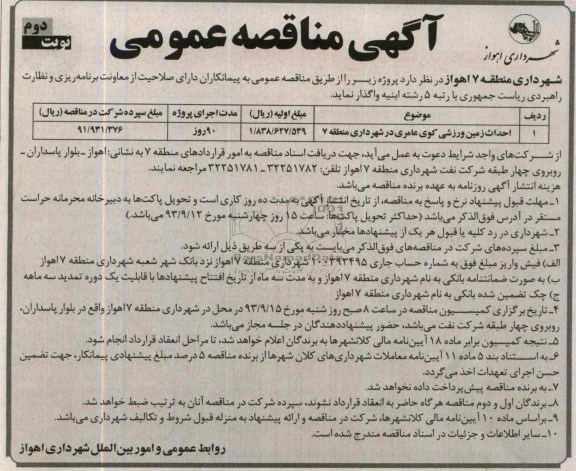 آگهی مناقصه عمومی
نوبت دوم
شهرداری اهواز
شهرداری منطقه ۷ اهواز در نظر دارد پروژه زیر را از طریق مناقصه عمومی به پیمانکاران دارای صلاحیت از معاونت برنامه‌ریزی و نظارت
راهبردی ریاست جمهوری با رتبه ۵ رشته ابنیه واگذار نماید.
ردیف موضوع مبلغ اولیه (ریال) مدت اجرای پروژه مبلغ سپرده شرکت در مناقصه (ریال)
۱ احداث زمین ورزشی کوی عامری در شهرداری منطقه ۷ ۱/۸۳۸/۶۲۷/۵۳۹ ۹۰ روز ۹۱/۹۳۱/۳۷۶
از شرکت‌های واجد شرایط دعوت به عمل می‌آید، جهت دریافت اسناد مناقصه به امور قراردادهای منطقه ۷ به نشانی: اهواز ـ بلوار پاسداران ـ
روبروی چهار طبقه شرکت نفت شهرداری منطقه ۷ اهواز تلفن: ۳۲۲۵۱۷۸۲ ـ ۳۲۲۵۱۷۸۱ مراجعه نمایند.
هزینه انتشار آگهی روزنامه به عهده برنده مناقصه می‌باشد.
۱ـ مهلت قبول پیشنهاد نرخ و پاسخ به مناقصه، از تاریخ انتشار آگهی به مدت ده روز کاری است و تحویل پاکت‌ها به دبیرخانه محرمانه حراست
مستقر در آدرس فوق‌الذکر می‌باشد (حداکثر تحویل پاکت‌ها: ساعت ۱۵ روز چهارشنبه مورخ ۹۳/۹/۱۲ می‌باشد.)
۲ـ شهرداری در رد کلیه یا قبول هر یک از پیشنهادها مختار می‌باشد.
۳ـ مبلغ سپرده‌های شرکت در مناقصه‌های فوق‌الذکر می‌بایست به یکی از سه طریق ذیل ارائه شود.
الف) فیش واریز مبلغ فوق به شماره حساب جاری ۱۰۰۳۹۳۴۹۵ شهرداری منطقه ۷ اهواز نزد بانک شهر شعبه شهرداری منطقه ۷ اهواز
ب) به صورت ضمانتنامه بانکی به نام شهرداری منطقه ۷ اهواز و به مدت سه ماه از تاریخ افتتاح پیشنهادها با قابلیت یک دوره تمدید سه ماهه
ج) چک تضمین شده بانکی به نام شهرداری منطقه ۷ اهواز
۴ـ تاریخ برگزاری کمیسیون مناقصه در ساعت ۸ صبح روز شنبه مورخ ۹۳/۹/۱۵ در محل در شهرداری منطقه ۷ اهواز واقع در بلوار پاسداران،
روبروی چهار طبقه شرکت نفت می‌باشد، حضور پیشنهاددهندگان در جلسه مجاز می‌باشد.
۵ـ نتیجه کمیسیون برابر ماده ۱۸ آیین‌نامه مالی کلانشهرها به برندگان اعلام خواهد شد، تا مراحل انعقاد قرارداد انجام شود.
۶ـ به استناد بند ۵ ماده ۱۱ آیین‌نامه معاملات شهرداری‌های کلان شهرها از برنده مناقصه ۵ درصد مبلغ پیشنهادی پیمانکار، جهت تضمین
حسن اجرای تعهدات اخذ می‌گردد.
۷ـ به برنده مناقصه پیش‌پرداخت داده نخواهد شد.
۸ـ برندگان اول و دوم مناقصه هرگاه حاضر به انعقاد قرارداد نشوند، سپرده شرکت در مناقصه آنان به ترتیب ضبط خواهد شد.
۹ـ براساس ماده ۱۰ آیین‌نامه مالی کلانشهرها، شرکت در مناقصه و ارائه پیشنهاد به منزله قبول شروط و تکالیف شهرداری می‌باشد.
۱۰ـ سایر اطلاعات و جزئیات در اسناد مناقصه مندرج شده است.
روابط عمومی و امور بین الملل شهرداری اهواز